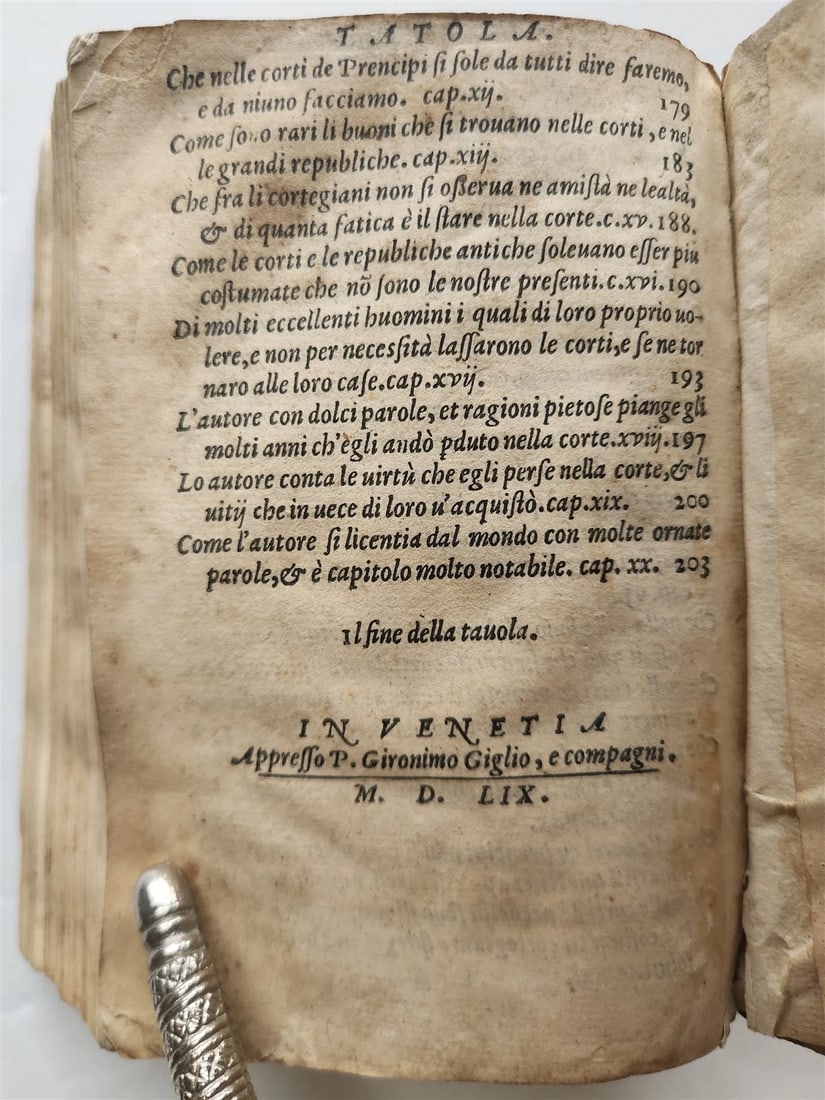 TATOLA.
Che nelle corti de Prencipi ſi ſole da tutti dire faremo,
e da niuno facciamo. cap.xij. 179
Come ſono rari li buoni che ſi trouano nelle corti, e nel
le grandi republiche. cap.xiij. 183
Che fra li cortegiani non ſi oſſerua ne amiſtà ne lealtà,
& di quanta fatica è il ſtare nella corte.c.xv.188.
Come le corti e le republiche antiche ſoleuano eſſer piu
coſtumate che nõ ſono le noſtre preſenti.c.xvi.190
Di molti eccellenti huomini i quali di loro proprio uo-
lere, e non per neceſſità laſſarono le corti, e ſe ne tor
naro alle loro caſe.cap.xvij. 193
L'autore con dolci parole, et ragioni pietoſe piange gli
molti anni ch'egli andò pduto nella corte.xviij.197
Lo autore conta le uirtù che egli perſe nella corte, & li
uitij che in uece di loro u'acquiſtò.cap.xix. 200
Come l'autore ſi licentia dal mondo con molte ornate
parole, & è capitolo molto notabile. cap. xx. 203
Il fine della tauola.
IN VENETIA
Appreſſo P. Gironimo Giglio, e compagni.
M. D. LIX.